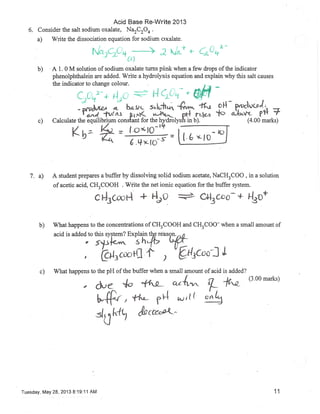 Acid Base Re-Write 2013
6. Consider the salt sodium oxalate, Na₂C₂O₄.
a) Write the dissociation equation for sodium oxalate.
Na₂C₂O₄ (s) → 2 Na⁺ + C₂O₄²⁻
b) A 1.0 M solution of sodium oxalate turns pink when a few drops of the indicator
phenolphthalein are added. Write a hydrolysis equation and explain why this salt causes
the indicator to change colour.
C₂O₄²⁻ + H₂O ⇌ HC₂O₄⁻ + OH⁻
- produces a basic solution from the OH⁻ produced,
and turns pink when pH rises to above pH 7
c) Calculate the equilibrium constant for the hydrolysis in b). (4.00 marks)
Kb = Kw/Ka = 1.0×10⁻¹⁴ / 6.4×10⁻⁵ = 1.6 ×10⁻¹⁰
7. a) A student prepares a buffer by dissolving solid sodium acetate, NaCH₃COO, in a solution
of acetic acid, CH₃COOH. Write the net ionic equation for the buffer system.
CH₃COOH + H₂O ⇌ CH₃COO⁻ + H₃O⁺
b) What happens to the concentrations of CH₃COOH and CH₃COO⁻ when a small amount of
acid is added to this system? Explain the reason.
• system shifts left
• [CH₃COOH] ↑ , [CH₃COO⁻] ↓
c) What happens to the pH of the buffer when a small amount of acid is added?
(3.00 marks)
• due to the action of the
buffer, the pH will only
slightly decrease.
Tuesday, May 28, 2013 8:19:11 AM
11